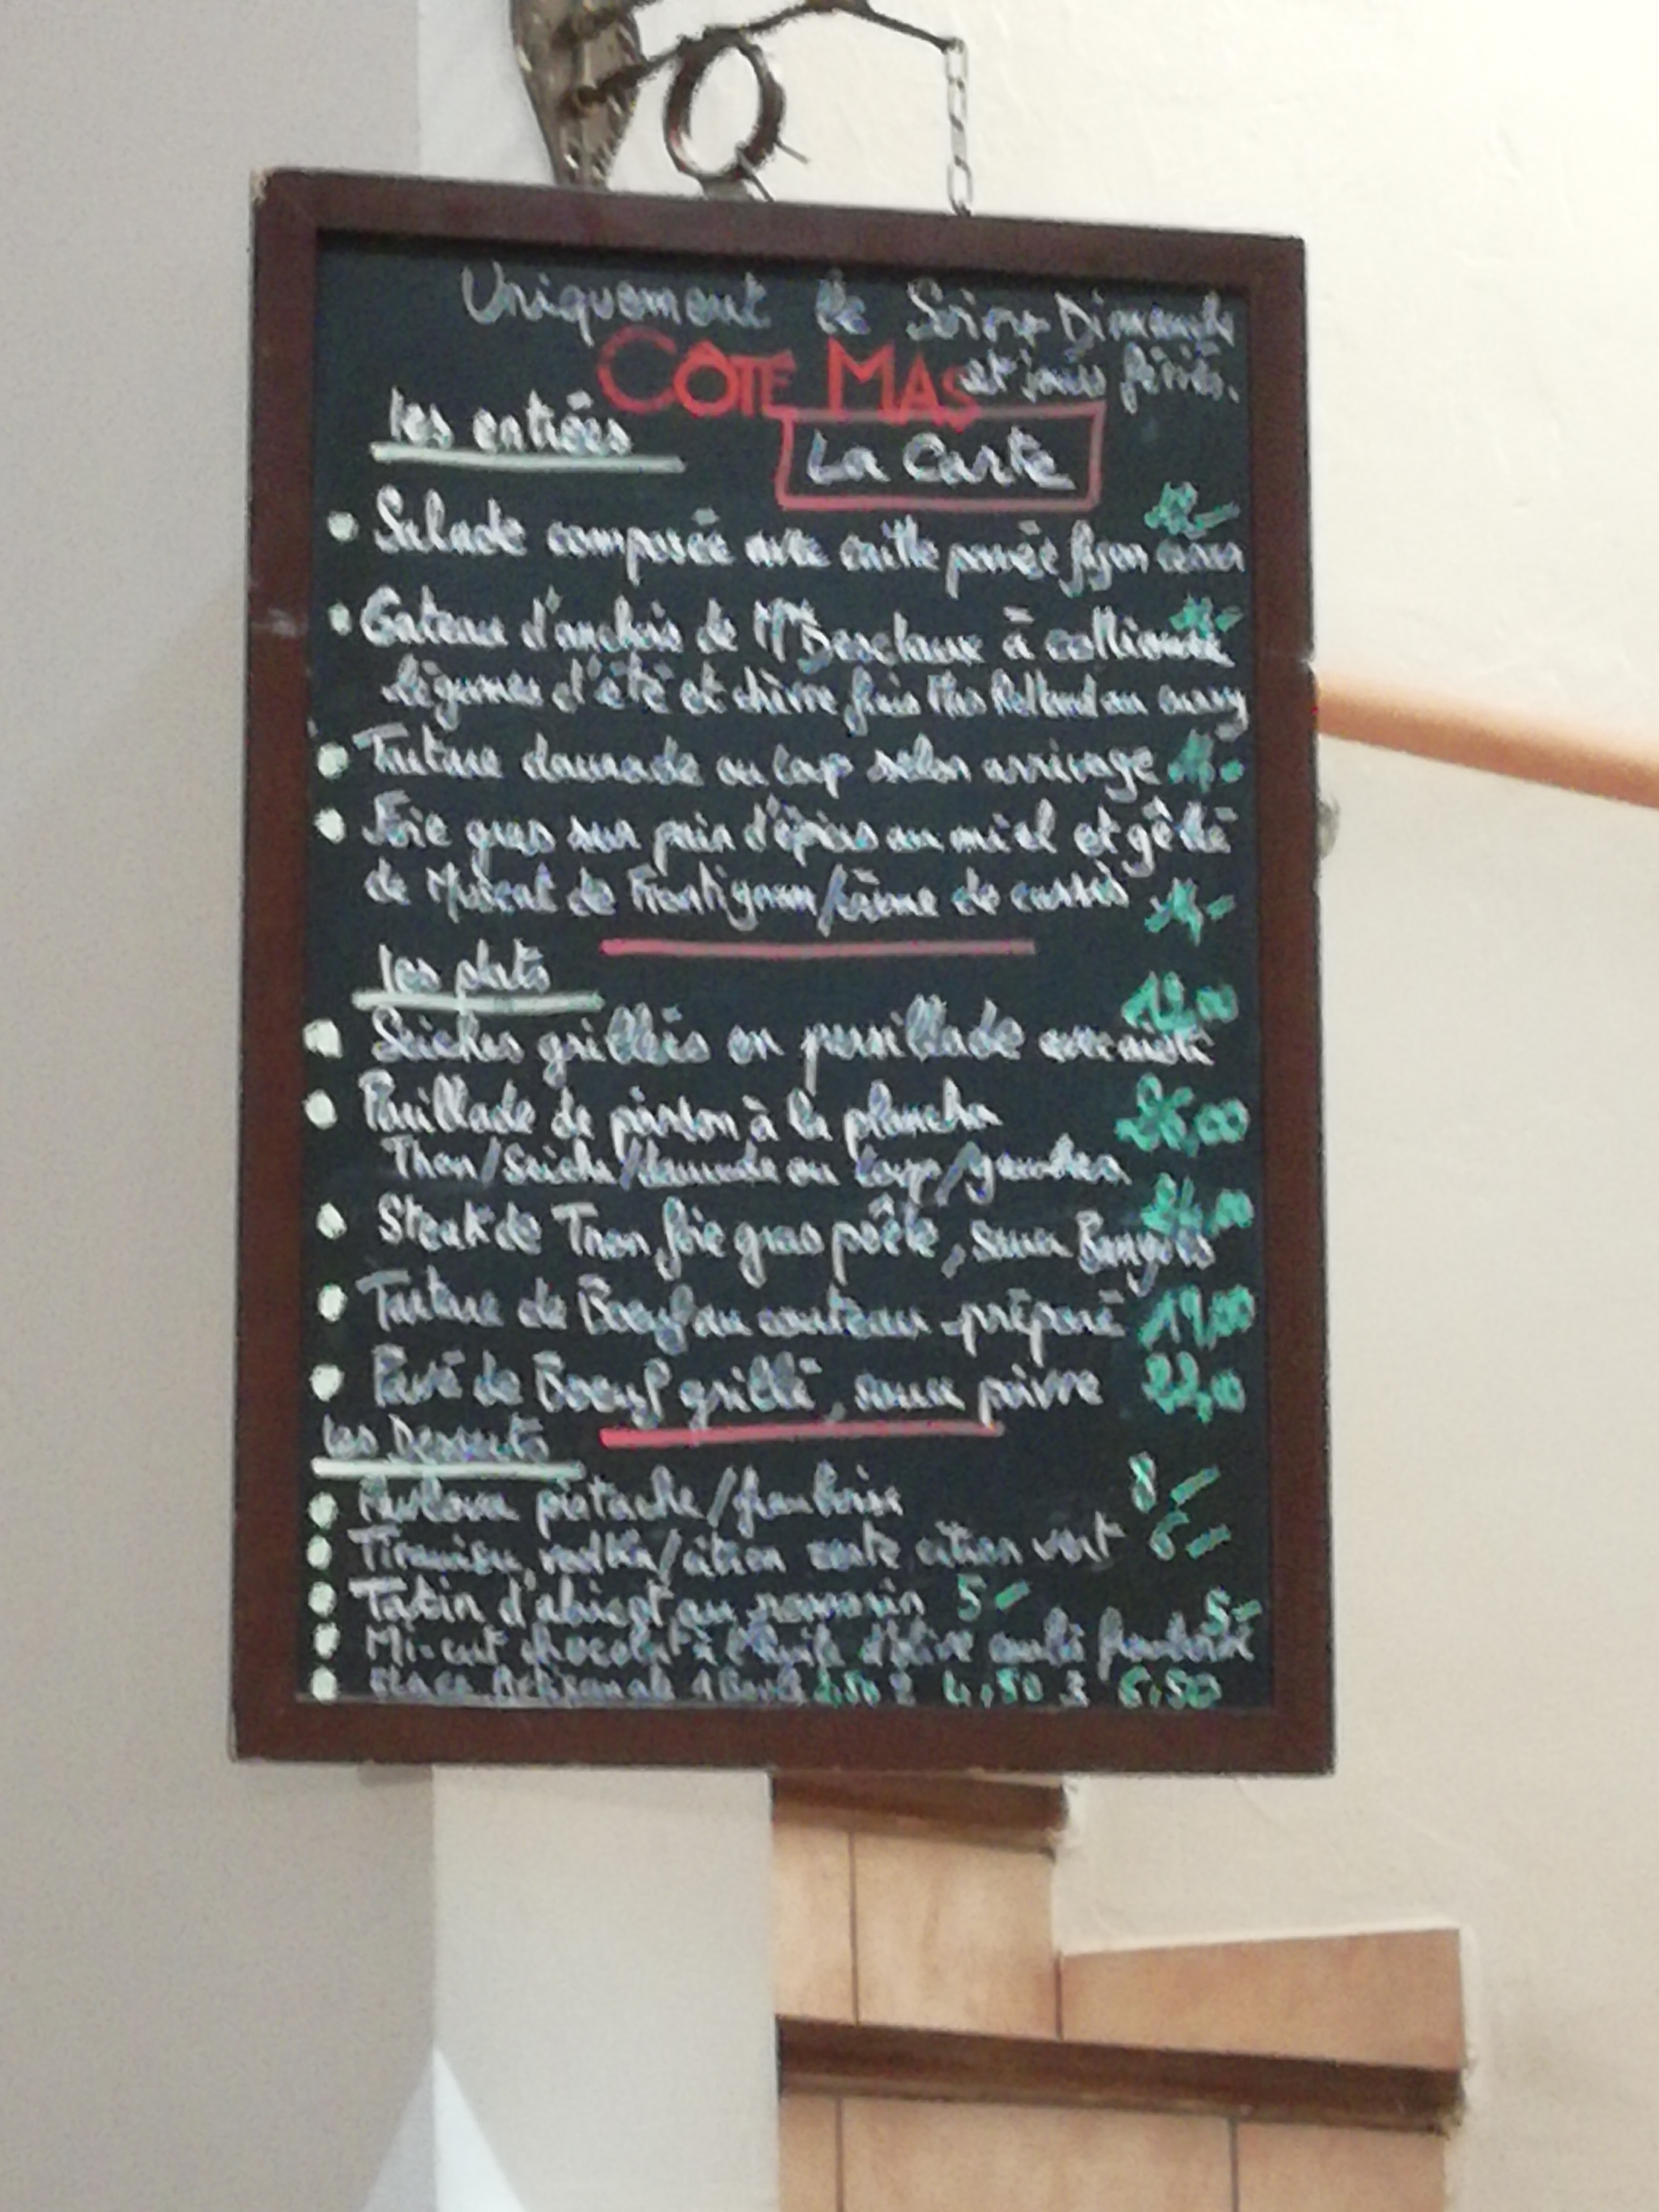 Uniquement le Soir, Dimanche
CÔTÉ MAS et jours fériés.
les entrées
La Carte
Salade composée avec caille panée façon
Gateau d'anchois de Mr Desclaux à collioure
légumes d'été et chèvre frais Mas Rolland au curry
Tartare daurade ou loup selon arrivage
Foie gras sur pain d'épices au miel et gêlée
de Muscat de Frontignan/crème de cassis
les plats
Seiches grillées en persillade
Parillade de poisson à la plancha
Thon/Seiche/daurade ou loup/gambas
Steak de Thon, foie gras poêlé, sauce Banyuls
Tartare de Boeuf au couteau préparé 19,00
Pavé de Boeuf grillé, sauce poivre 22,00
Les Desserts
Pavlova pistache/framboise 8-
Tiramisu, vodka/citron zeste citron vert 6-
Tatin d'abricot au romarin 5-
5-
Mi-cuit chocolat à l'huile d'olive coulis framboise
Glace Artisanale 1 Boule 2,50 2 4,50 3 6,50